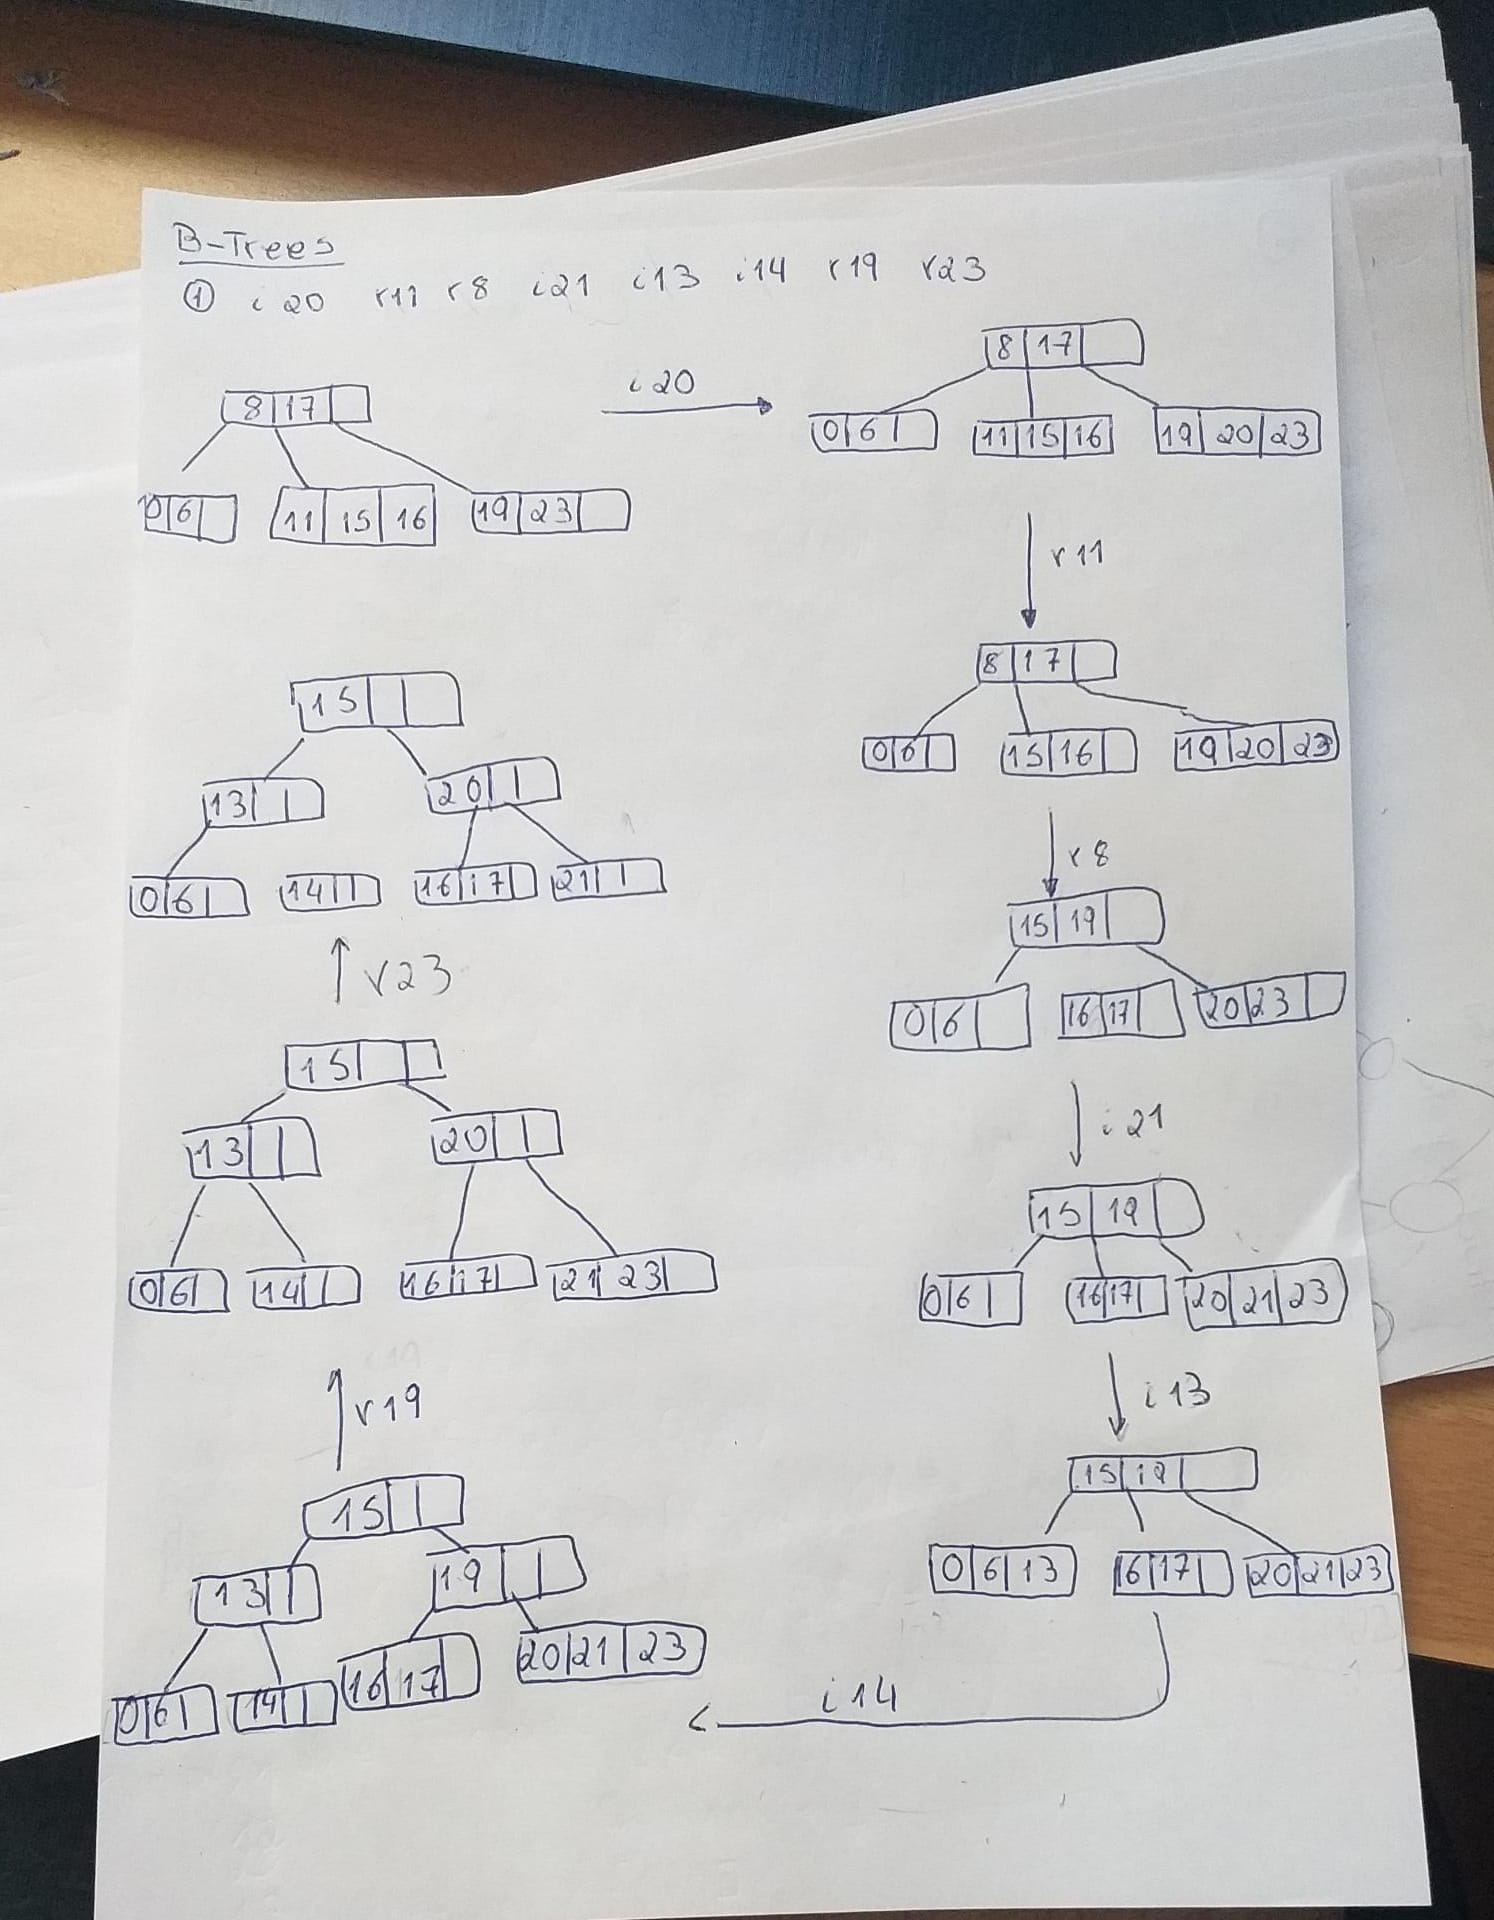 B-Trees
① i 20 r11 r8 i21 i13 i14 r19 r23
8 17
0 6 11 15 16 19 23
i 20
8 17
0 6 11 15 16 19 20 23
r 11
8 17
0 6 15 16 19 20 23
r 8
15 19
0 6 16 17 20 23
i 21
15 19
0 6 16 17 20 21 23
i 13
15 19
0 6 13 16 17 20 21 23
i 14
15
13 19
0 6 14 16 17 20 21 23
r19
15
13 20
0 6 14 16 17 21 23
r23
15
13 20
0 6 14 16 17 21